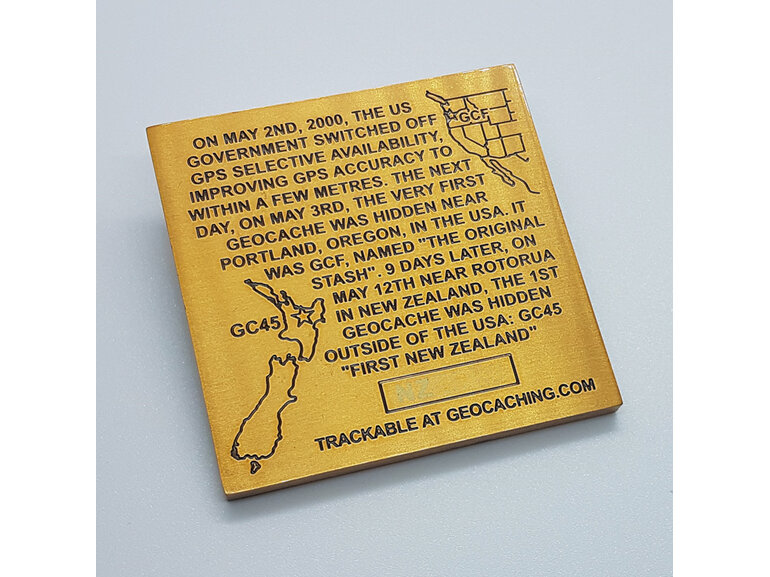 ON MAY 2ND, 2000, THE US
GOVERNMENT SWITCHED OFF
GPS SELECTIVE AVAILABILITY,
IMPROVING GPS ACCURACY TO
WITHIN A FEW METRES. THE NEXT
DAY, ON MAY 3RD, THE VERY FIRST
GEOCACHE WAS HIDDEN NEAR
PORTLAND, OREGON, IN THE USA. IT
WAS GCF, NAMED "THE ORIGINAL
STASH". 9 DAYS LATER, ON
MAY 12TH NEAR ROTORUA
IN NEW ZEALAND, THE 1ST
GEOCACHE WAS HIDDEN
OUTSIDE OF THE USA: GC45
"FIRST NEW ZEALAND"
GCF
GC45
TRACKABLE AT GEOCACHING.COM